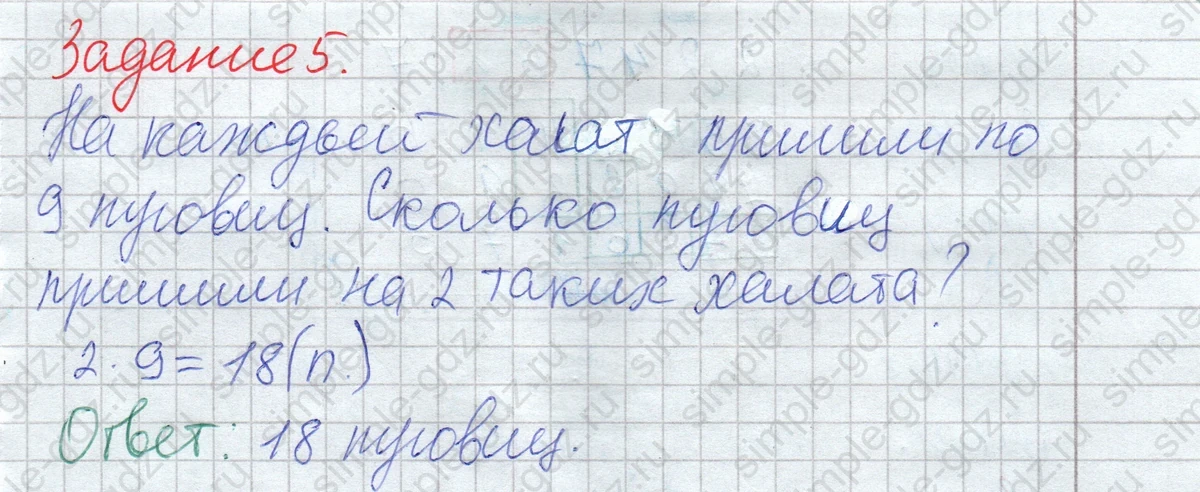 Задание 5.
На каждый халат пришили по
9 пуговиц. Сколько пуговиц
пришили на 2 таких халата?
2 · 9 = 18 (п.)
Ответ: 18 пуговиц.
simple-gdz.ru